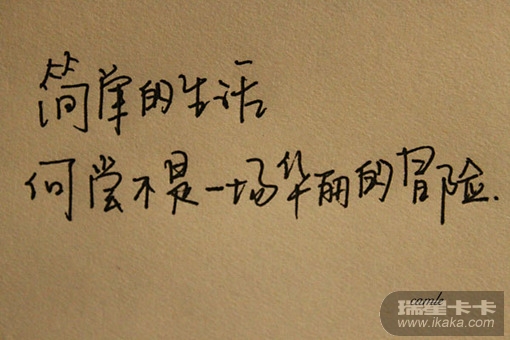 简单的生活
何尝不是一场华丽的冒险.
camle
瑞星卡卡
www.ikaka.com